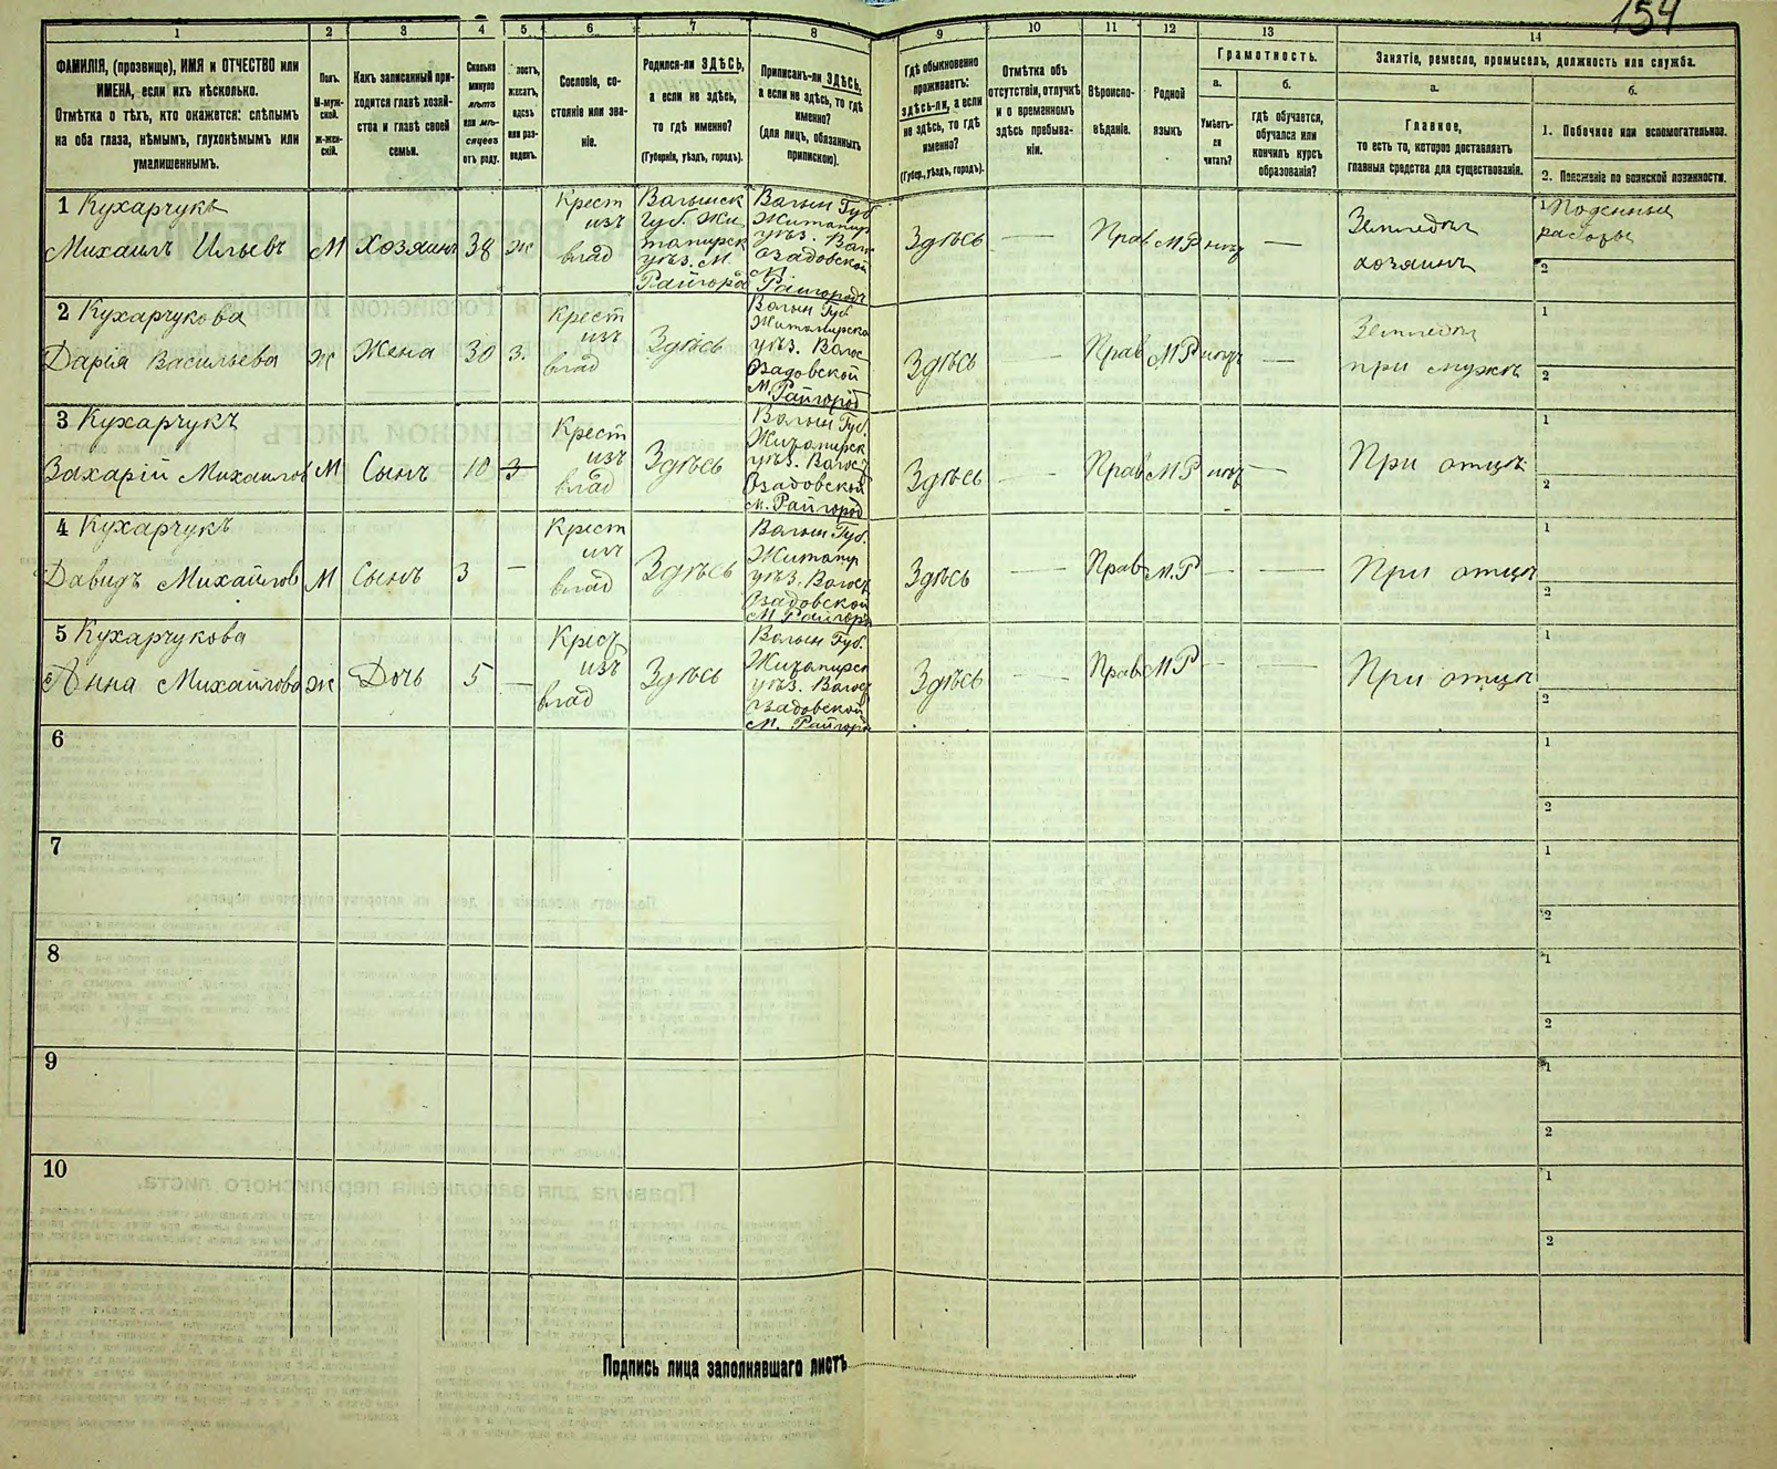 154
1 2 3 4 5 6 7 8 9 10 11 12 13 14
ФАМИЛІЯ, (прозвище), ИМЯ и ОТЧЕСТВО или
ИМЕНА, если ихъ нѣсколько.
Отмѣтка о тѣхъ, кто окажется: слѣпымъ
на оба глаза, нѣмымъ, глухонѣмымъ или
умалишеннымъ.
Полъ.
М-муж-
ской.
ж-жен-
скій.
Какъ записанный при-
ходится главѣ хозяй-
ства и главѣ своей
семьи.
Сколько
минуло
лѣтъ
или мѣ-
сяцевъ
отъ роду.
лостъ,
женатъ,
вдовъ
или раз-
веденъ.
Сословіе, со-
стояніе или зва-
ніе.
Родился-ли ЗДѢСЬ,
а если не здѣсь,
то гдѣ именно?
(Губернія, уѣздъ, городъ).
Приписанъ-ли ЗДѢСЬ,
а если не здѣсь, то гдѣ
именно?
(для лицъ, обязанныхъ
припискою).
Гдѣ обыкновенно
проживаетъ:
здѣсь-ли, а если
не здѣсь, то гдѣ
именно?
(Губер., уѣздъ, городъ).
Отмѣтка объ
отсутствіи, отлучкѣ
и о временномъ
здѣсь пребыва-
ніи.
Вѣроиспо-
вѣданіе.
Родной
языкъ
Грамотность.
а.
Умѣетъ-
ли
читать?
б.
гдѣ обучается,
обучался или
кончилъ курсъ
образованія?
Занятіе, ремесло, промыселъ, должность или служба.
а.
Главное,
то есть то, которое доставляетъ
главныя средства для существованія.
б.
1. Побочное или вспомогательное.
2. Положеніе по воинской повинности.
1 Кухарчукъ
Михаилъ Ильевъ М Хозяинъ 38 ж
Крест
изъ
влад
Волынск
Губ. Жи
томирск
уѣз. М.
Райгород
Волын Губ
Житомир
уѣз. Вол
Озадовской
М.
Райгородъ
Здѣсь — Прав М Р —
хозяинъ
1 Поденныя
работы
2
2 Кухарчукова
Дарія Васильева Ж Жена 30 З.
Крест
изъ
влад
Здѣсь
Волын Губ
Житомирско
уѣз. Волос
Озадовской
М. Райгород
Здѣсь — Прав М Р —
при мужѣ
1
2
3 Кухарчукъ
Захарій Михаилов М Сынъ 10
Крест
изъ
влад
Здѣсь
Волын Губ.
Житомирск
уѣз. Волост
Озадовской
м. Райгород
Здѣсь — Прав М Р —
При отцѣ
1
2
4 Кухарчукъ
Давидъ Михайлов М Сынъ 3 —
Крест
изъ
влад
Здѣсь
Волын Губ.
Житомир
уѣз. Волост
Озадовской
М Райгород
Здѣсь — Прав М.Р — —
При отцѣ
1
2
5 Кухарчукова
Анна Михайлова ж Дочь 5 —
Крест
изъ
влад
Здѣсь
Волын Губ.
Житомирск
уѣз. Волост
Озадовской
М. Райгород
Здѣсь — Прав М Р — —
При отцѣ
1
2
6
1
2
7
1
2
8
1
2
9
1
2
10
1
2
Подпись лица заполнявшаго листъ